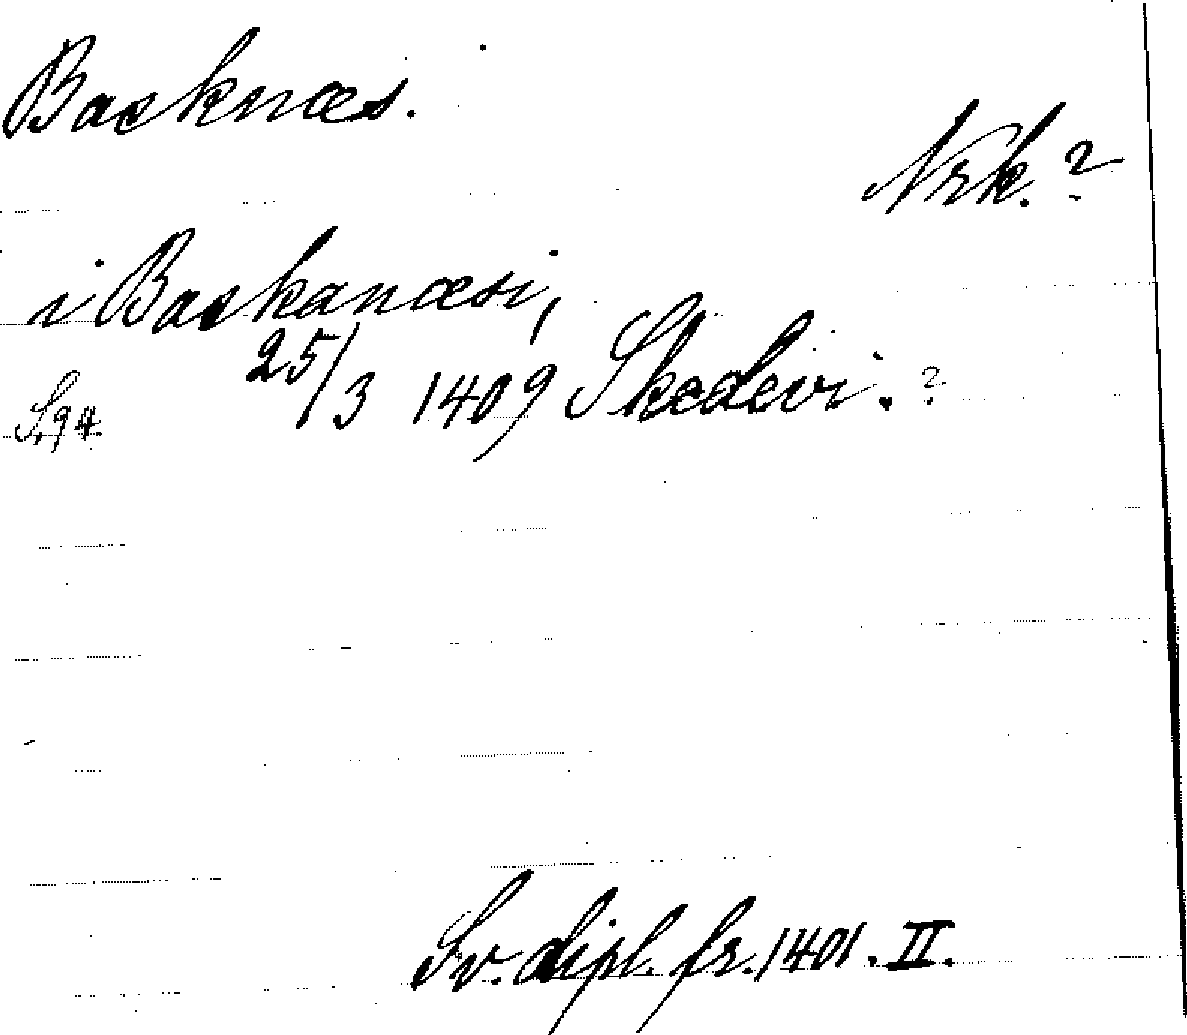 Basknæs.
Nrk. ?
i Baskanæsi,
25/3 1409 Skedevi. ?
S. 94.
Sv. dipl. fr. 1401. II.